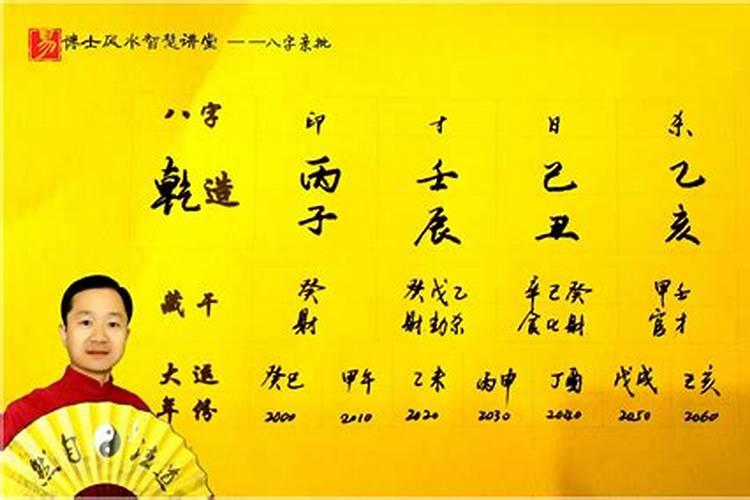 易 博士风水智慧讲堂 ——八字亲批
八字 印 才 日 杀
乾造 丙 壬 己 乙
子 辰 丑 亥
藏干 癸 癸戊乙 辛己癸 甲壬
财 财劫杀 食比财 官才
大运 癸巳 甲午 乙未 丙申 丁酉 戊戌 己亥
年份 2000 2010 2020 2030 2040 2050 2060
道法自然